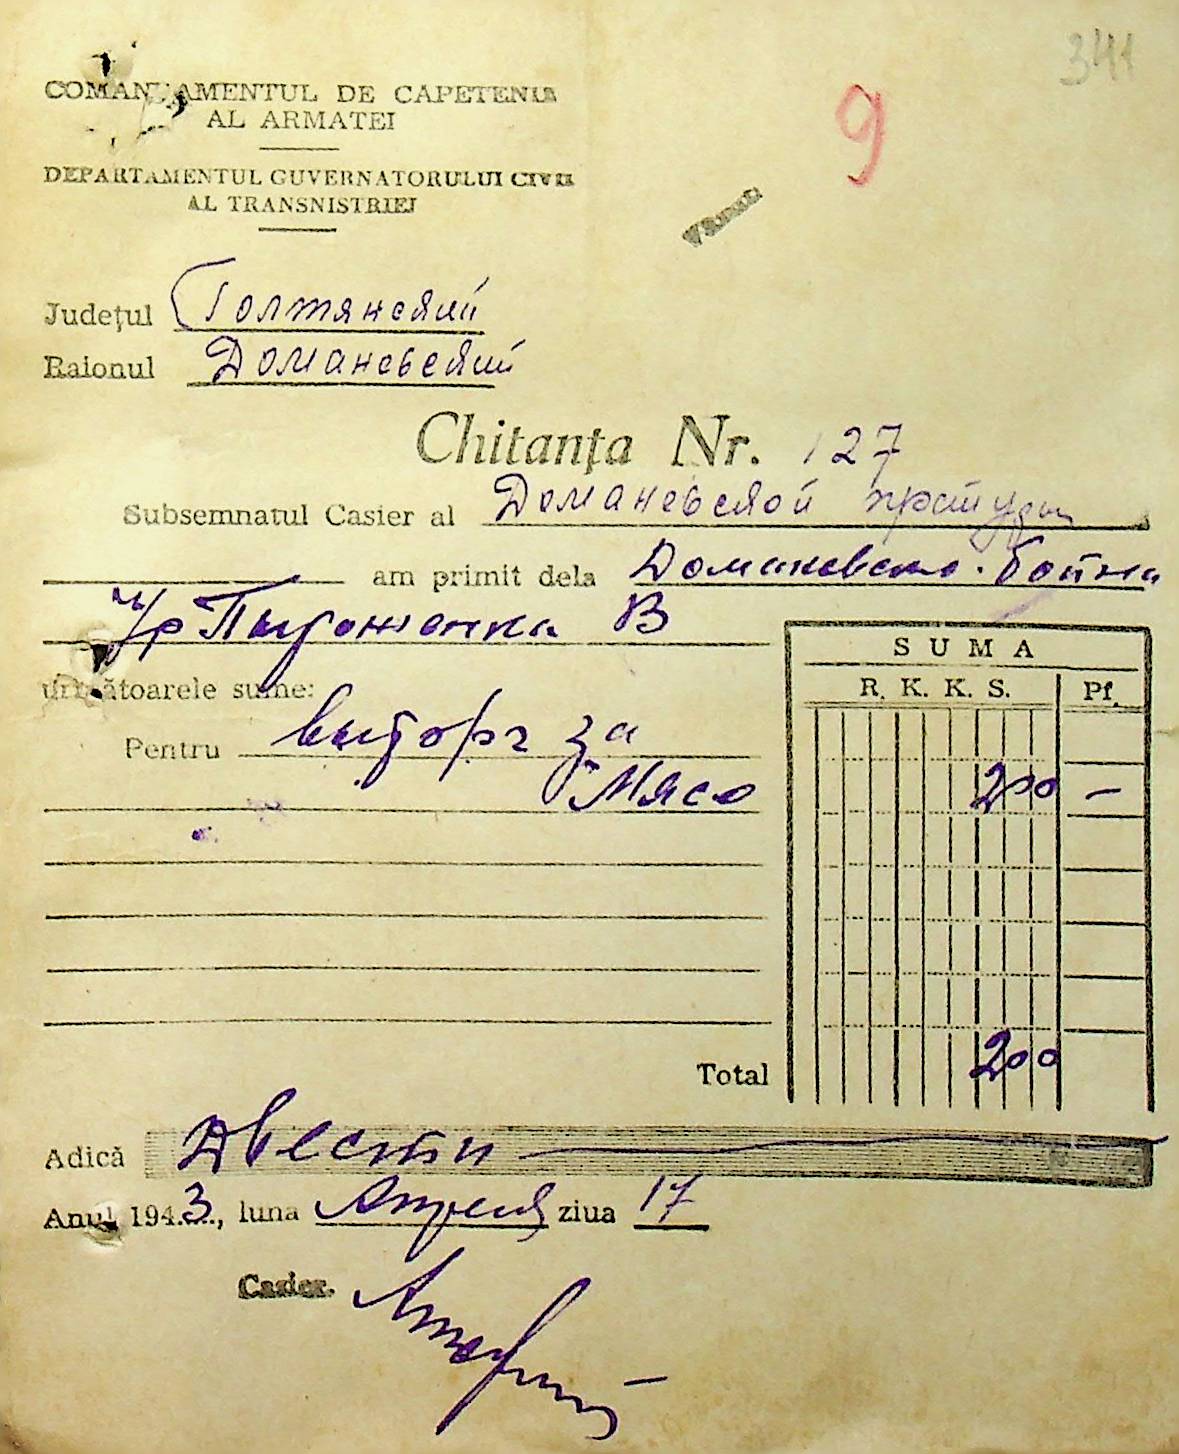 341
9
COMANDAMENTUL DE CAPETENIE
AL ARMATEI
DEPARTAMENTUL GUVERNATORULUI CIVIL
AL TRANSNISTRIEI
Județul Голтянский
Raionul Доманевский
Chitanța Nr. 127
Subsemnatul Casier al Доманевской претуры
am primit dela Доманевско. бойни
ч/р В
următoarele sume:
SUMA
R. K. K. S. Pf.
Pentru выторг за
мясо 200 —
Total 200
Adică Двести
Anul 1943, luna Апреля ziua 17
Casier.